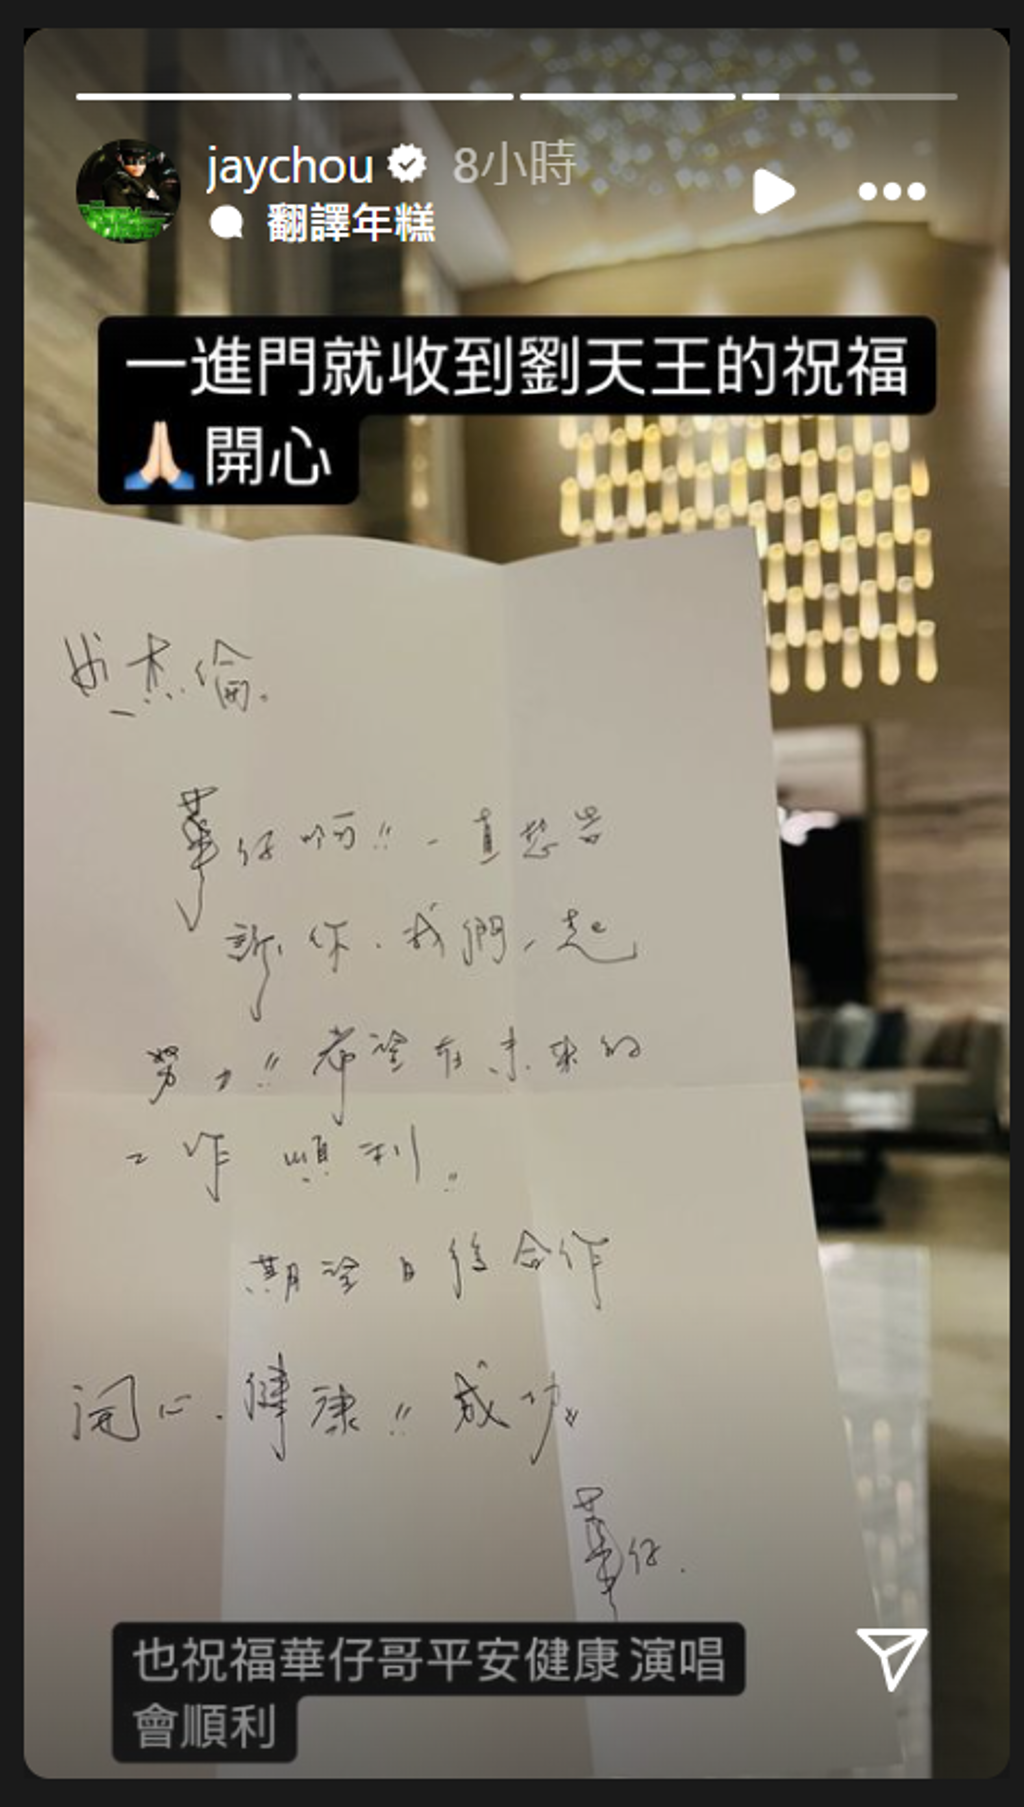 jaychou 8小時
翻譯年糕
一進門就收到劉天王的祝福
🙏🏻開心
杰倫.
華仔啊!! 一直想告
訴你.我們一起
努力!! 希望在未來的
工作 順利!!
期望日後合作
開心.健康!! 成功!!
華仔.
也祝福華仔哥平安健康 演唱
會順利